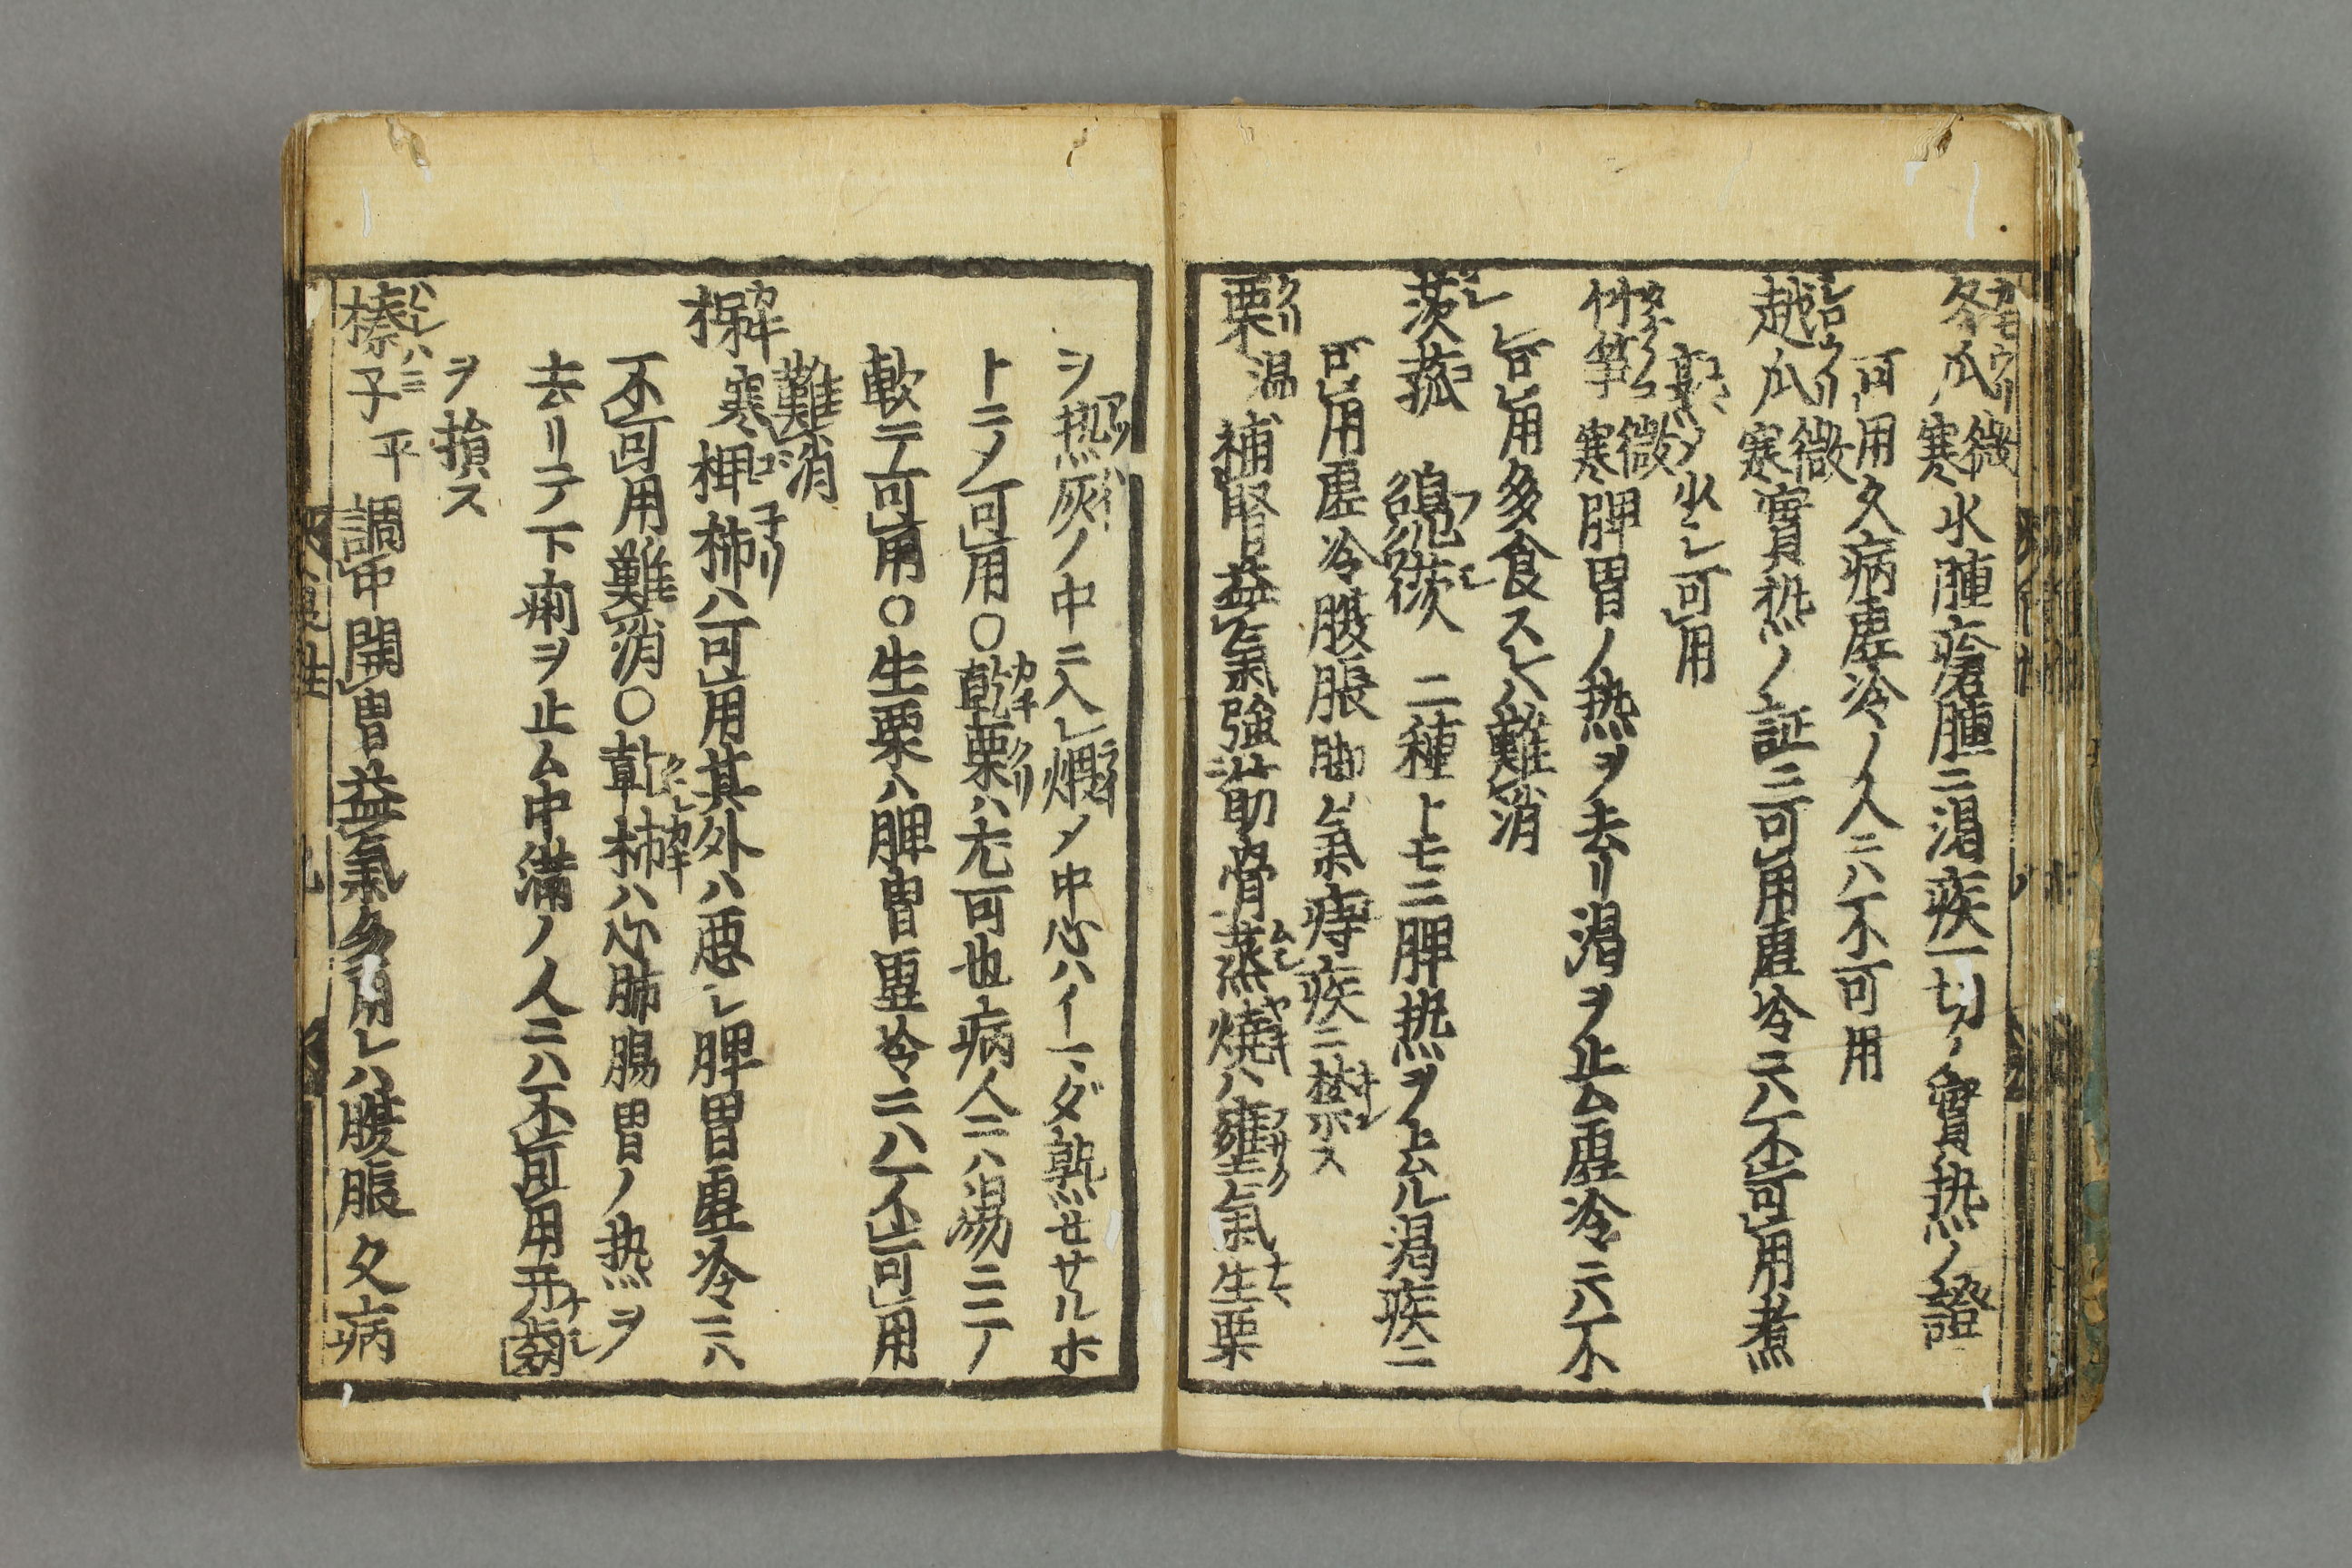 冬瓜 微寒 水腫瘡腫ニ渇疾一切ノ實热ノ證
可用久病虚冷ノ人ニハ不可用
越瓜 微寒 實热ノ証ニ可用虚冷ニハ不可用煮
メ少シ可用
竹筍 微寒 脾胃ノ热ヲ去リ渇ヲ止ム虚冷ニハ不
可用多食スレハ難消
茨菰 二種トモニ脾热ヲ止ム渇疾ニ
可用虚冷腹脹脚氣痔疾ニ禁ス
栗 温 補腎益氣強筋骨蒸燒ハ壅氣生栗
ヲ热灰ノ中ニ入レ煨メ中心ハイマダ熟セサルホ
トニメ可用〇乾栗ハ尤可也病人ニハ湯ニニノ
軟ニテ可用〇生栗ハ脾胃虚冷ニハ不可用
難消
柿 寒 椑柿ハ可用其外ハ悪シ脾胃虚冷ニハ
不可用難消〇乾柿ハ心肺腸胃ノ热ヲ
去リテ下痢ヲ止ム中満ノ人ニハ不可用
ヲ損ス
榛子 平 調中開胃益氣多用レハ腹脹久病